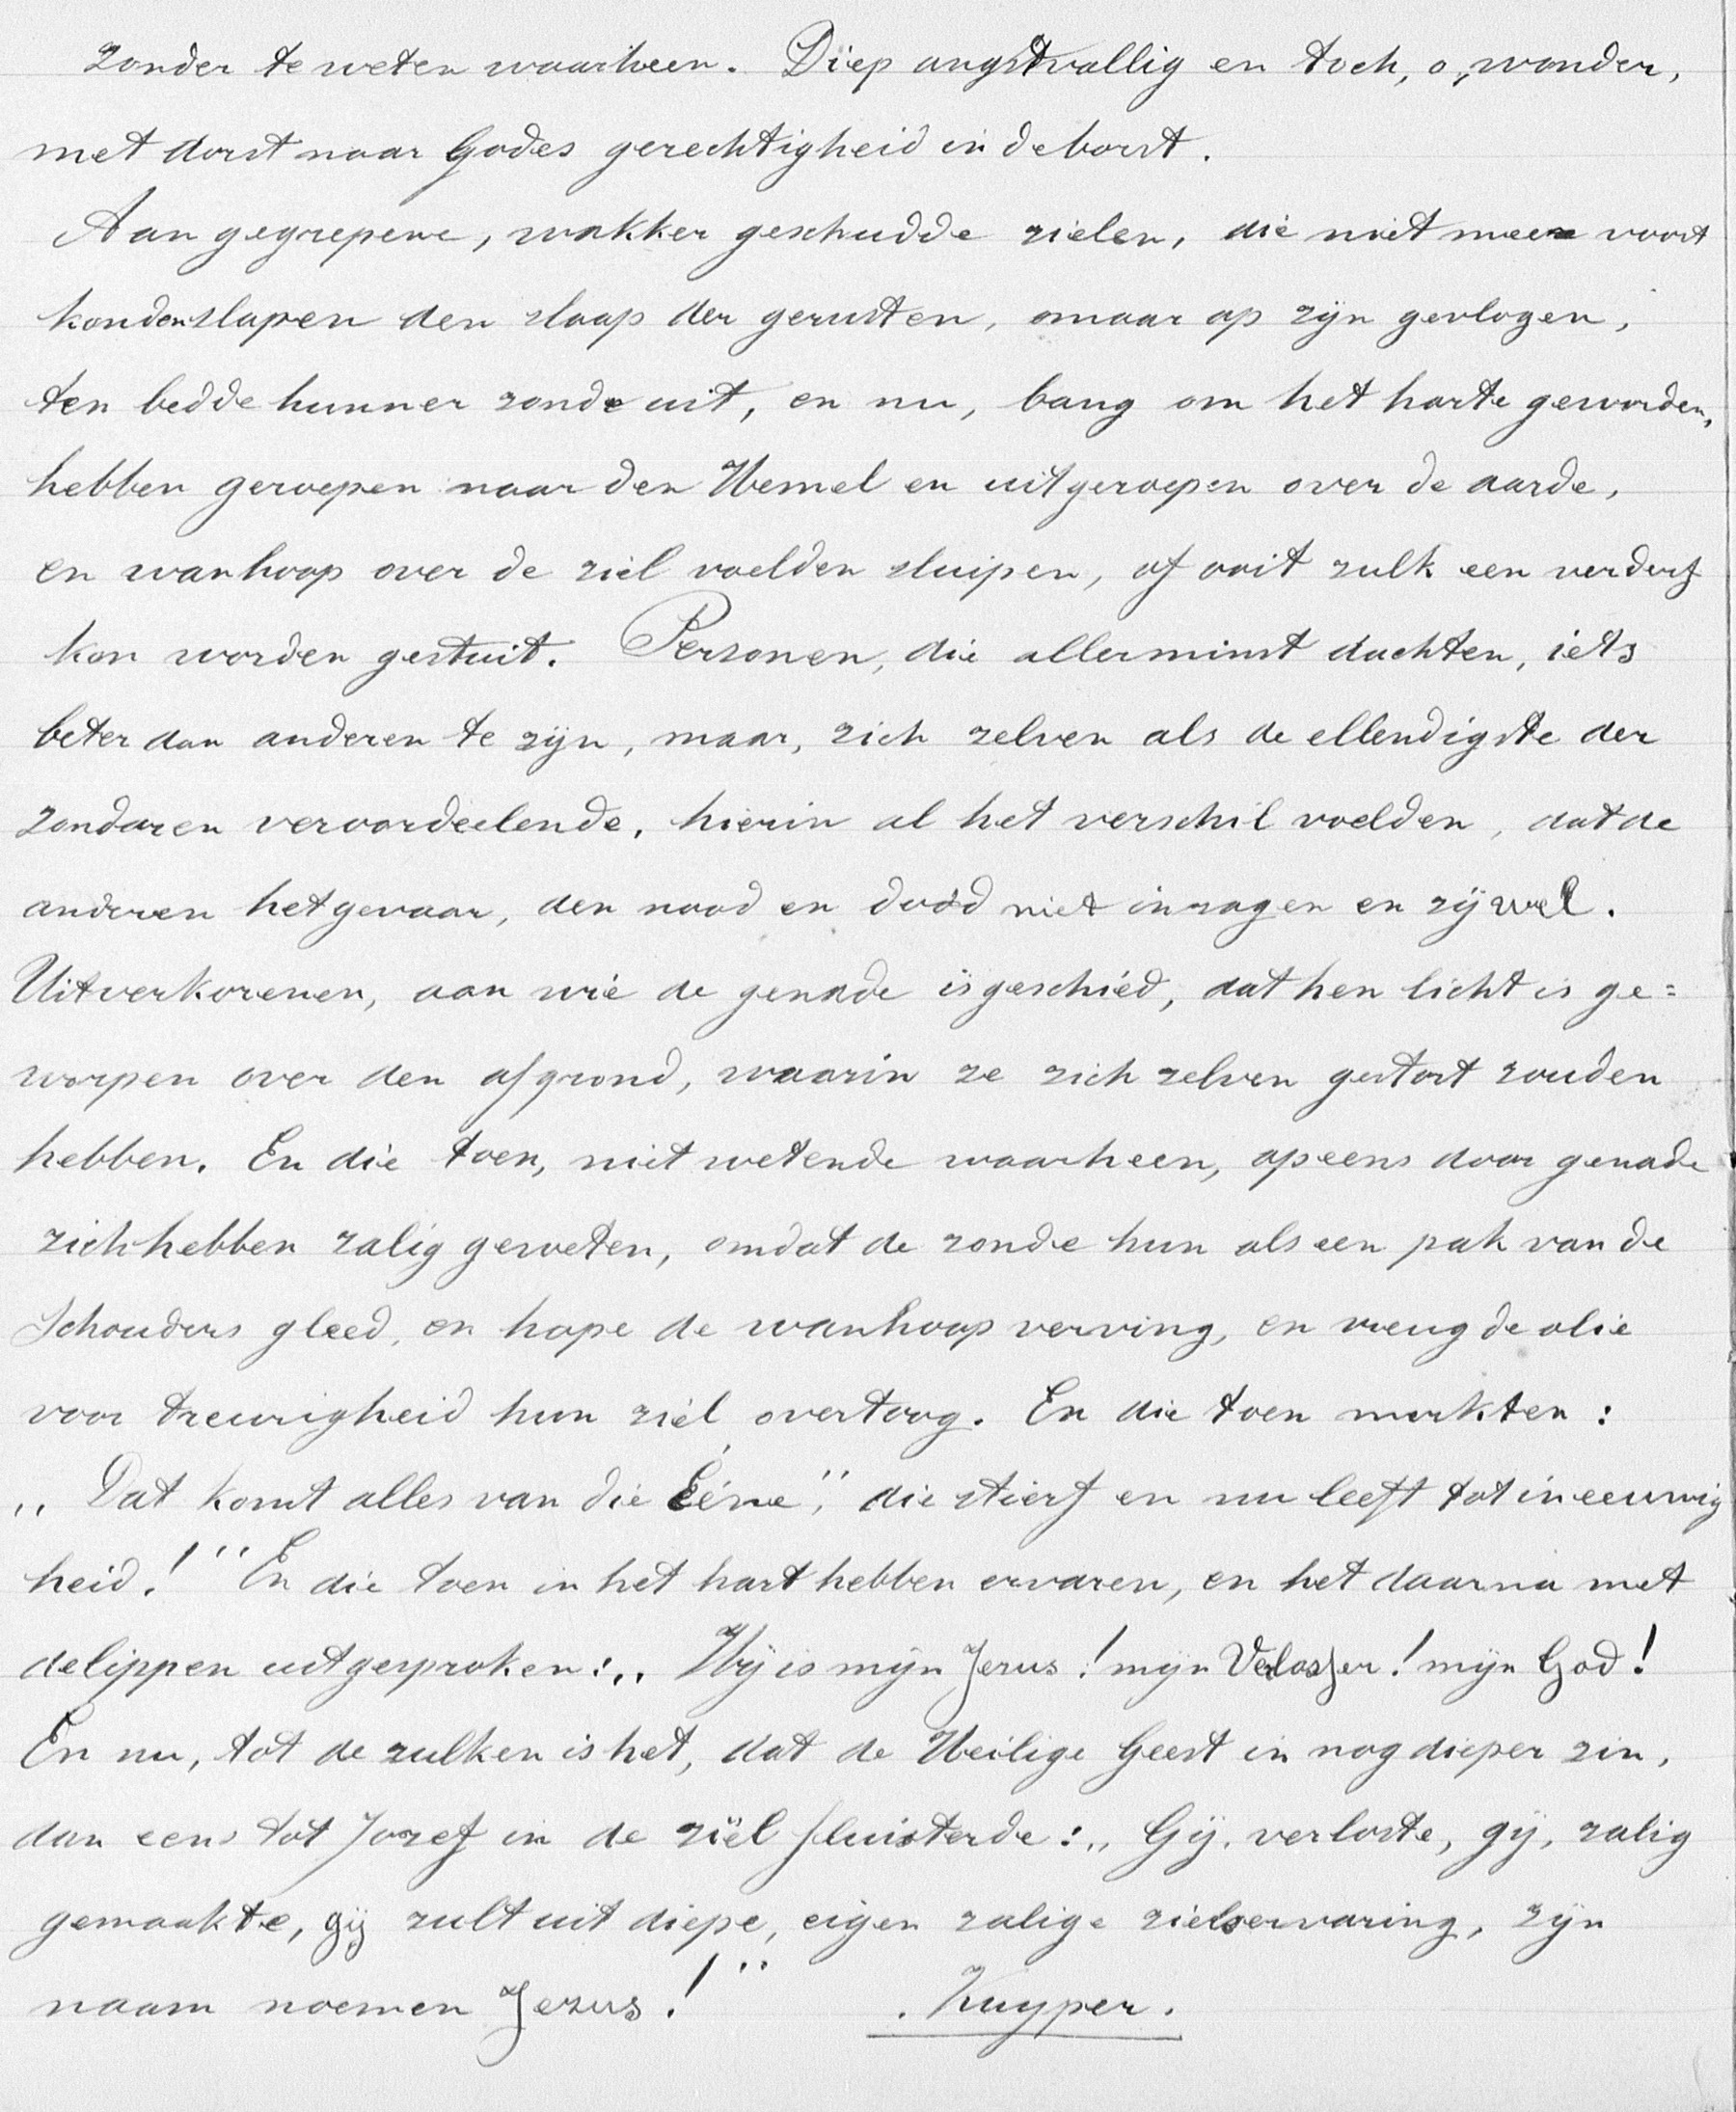 zonder te weten waarheen. Diep angstvallig en toch, o, wonder,
met dorst naar Godes gerechtigheid in de borst.
Aan gegrepene, wakker geschudde zielen, die niet meer voort
konden slapen den slaap der gerusten, maar op zijn gevlogen,
ten bedde hunner zonde uit, en nu, bang om het harte geworden,
hebben geroepen naar den Hemel en uitgeroepen over de aarde,
en wanhoop over de ziel voelden sluipen, of ooit zulk een verderf
kon worden gestuit. Personen, die allerminst dachten, iets
beter dan anderen te zijn, maar, zich zelven als de ellendigste der
zondaren veroordeelende, hierin al het verschil voelden, dat de
anderen het gevaar, den nood en dood niet inzagen en zij wel.
Uitverkorenen, aan wie de genade is geschied, dat hen licht is ge=
worpen over den afgrond, waarin ze zich zelven gestort zouden
hebben. En die toen, niet wetende waarheen, opeens door genade
zich hebben zalig geweten, omdat de zonde hun als een pak van de
Schouders gleed, en hope de wanhoop verving, en vreugde olie
voor treurigheid hun ziel overtoog. En die toen merkten:
„Dat komt alles van die Eéne", die stierf en nu leeft tot in eeuwig
heid!" En die toen in het hart hebben ervaren, en het daarna met
de lippen uitgesproken: „Hij is mijn Jezus! mijn Verlosser! mijn God!
En nu, tot de zulken is het, dat de Heilige Geest in nog dieper zin,
dan eens tot Jozef in de ziel fluisterde: „Gij, verloste, gij, zalig
gemaakte, gij zult uit diepe, eigen zalige zielservaring, zijn
naam noemen Jezus!" . Kuyper.